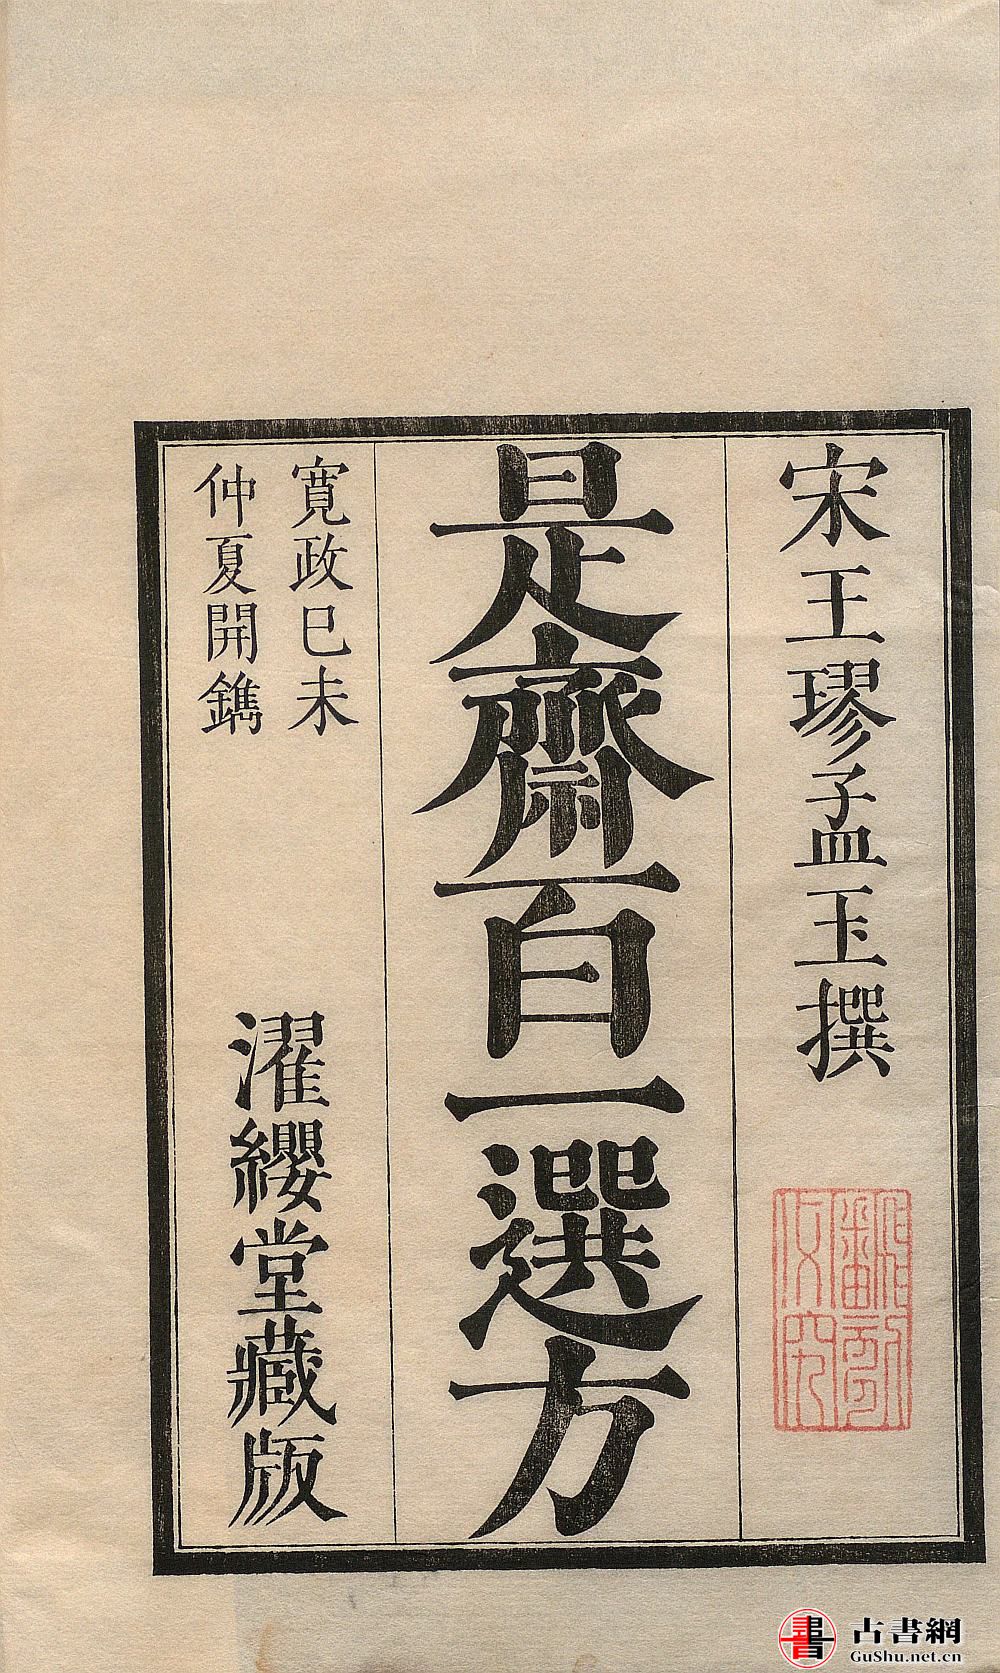 宋王璆孟玉撰
是齋百一選方
寛政巳未
仲夏開鐫
濯纓堂藏版
古書網
GuShu.net.cn